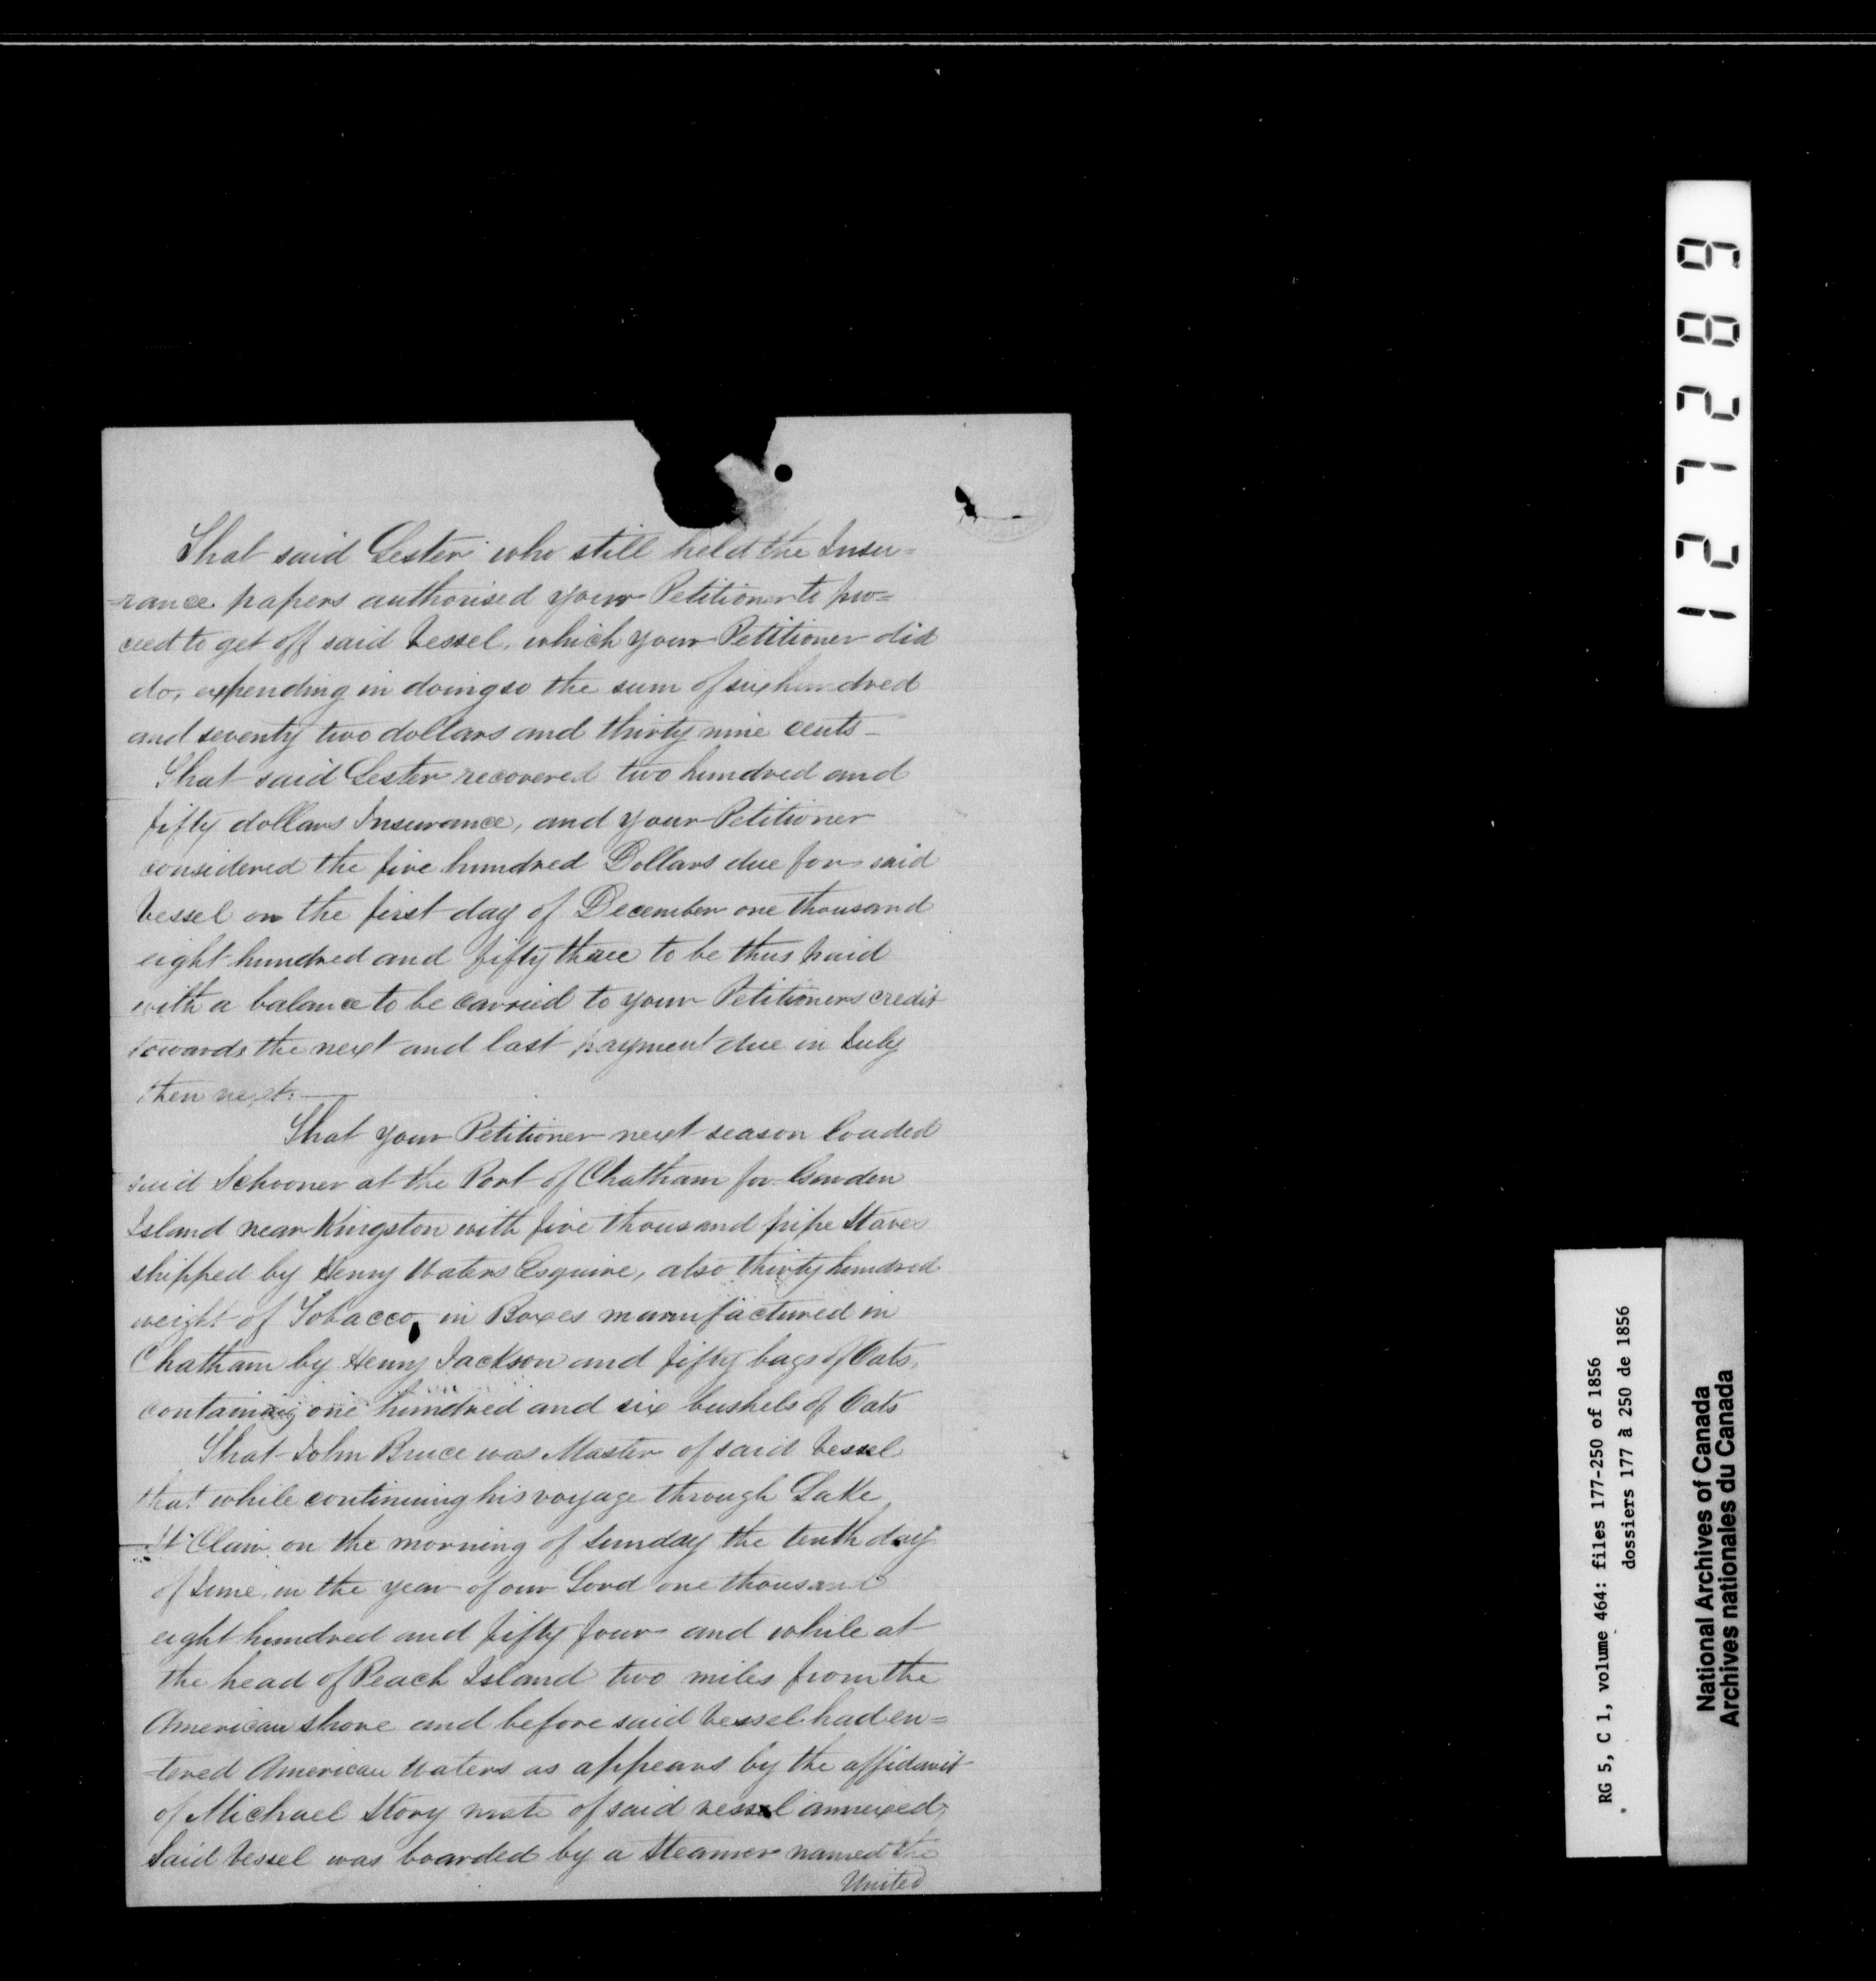 That said Lester who still held the Insu=
=rance papers authorised your Petitioner to pro=
ceed to get off said Vessel, which your Petitioner did
do, expending in doing so the sum of six hundred
and seventy two dollars and thirty nine cents –
That said Lester recovered two hundred and
fifty dollars Insurance, and your Petitioner
considered the five hundred Dollars due for said
Vessel on the first day of December one thousand
eight hundred and fifty three to be thus paid
with a balance to be carried to your Petitioners credit
towards the next and last payment due in July
then next. —
That your Petitioner next season loaded
said Schooner at the Port of Chatham for Garden
Island near Kingston with five thousand pipe Staves
shipped by Henry Waters Esquire, also thirty hundred
weight of Tobacco, in Boxes manufactured in
Chatham by Henry Jackson and fifty bags of Oats,
containing one hundred and six bushels of Oats
That John Bruce was Master of said Vessel
that while continuing his voyage through Lake
St Clair on the morning of Sunday the tenth day
of June in the year of our Lord one thousand
eight hundred and fifty four and while at
the head of Peach Island two miles from the
American shore and before said Vessel had en=
=tered American Waters as appears by the affidavit
of Michael Story mate of said vessel annexed,
Said Vessel was boarded by a Steamer named the
United
127289
RG 5, C 1, volume 464: files 177-250 of 1856
dossiers 177 à 250 de 1856
National Archives of Canada
Archives nationales du Canada